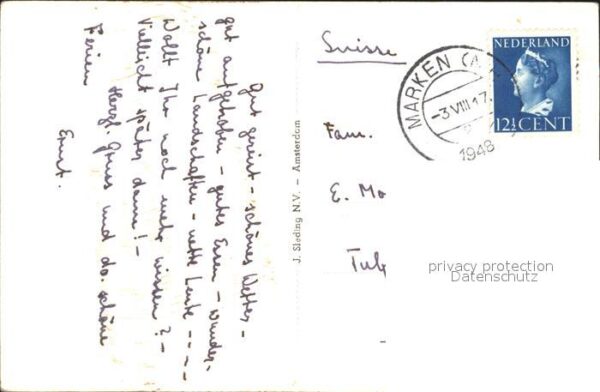 Gut gereist - schönes Wetter -
gut aufgehoben - gutes Essen - wunder-
schöne Landschaften - nette Leute - - - -
Wollt Ihr noch mehr wissen? -
Vielleicht später dann! -
Herzl. Gruss und do. schöne
Ferien
Ernst.
J. Sleding N.V. - Amsterdam
Suisse
Fam.
E. Mo
Tuf
privacy protection
Datenschutz
MARKEN
-3 VIII 17
1948
NEDERLAND
12½ CENT